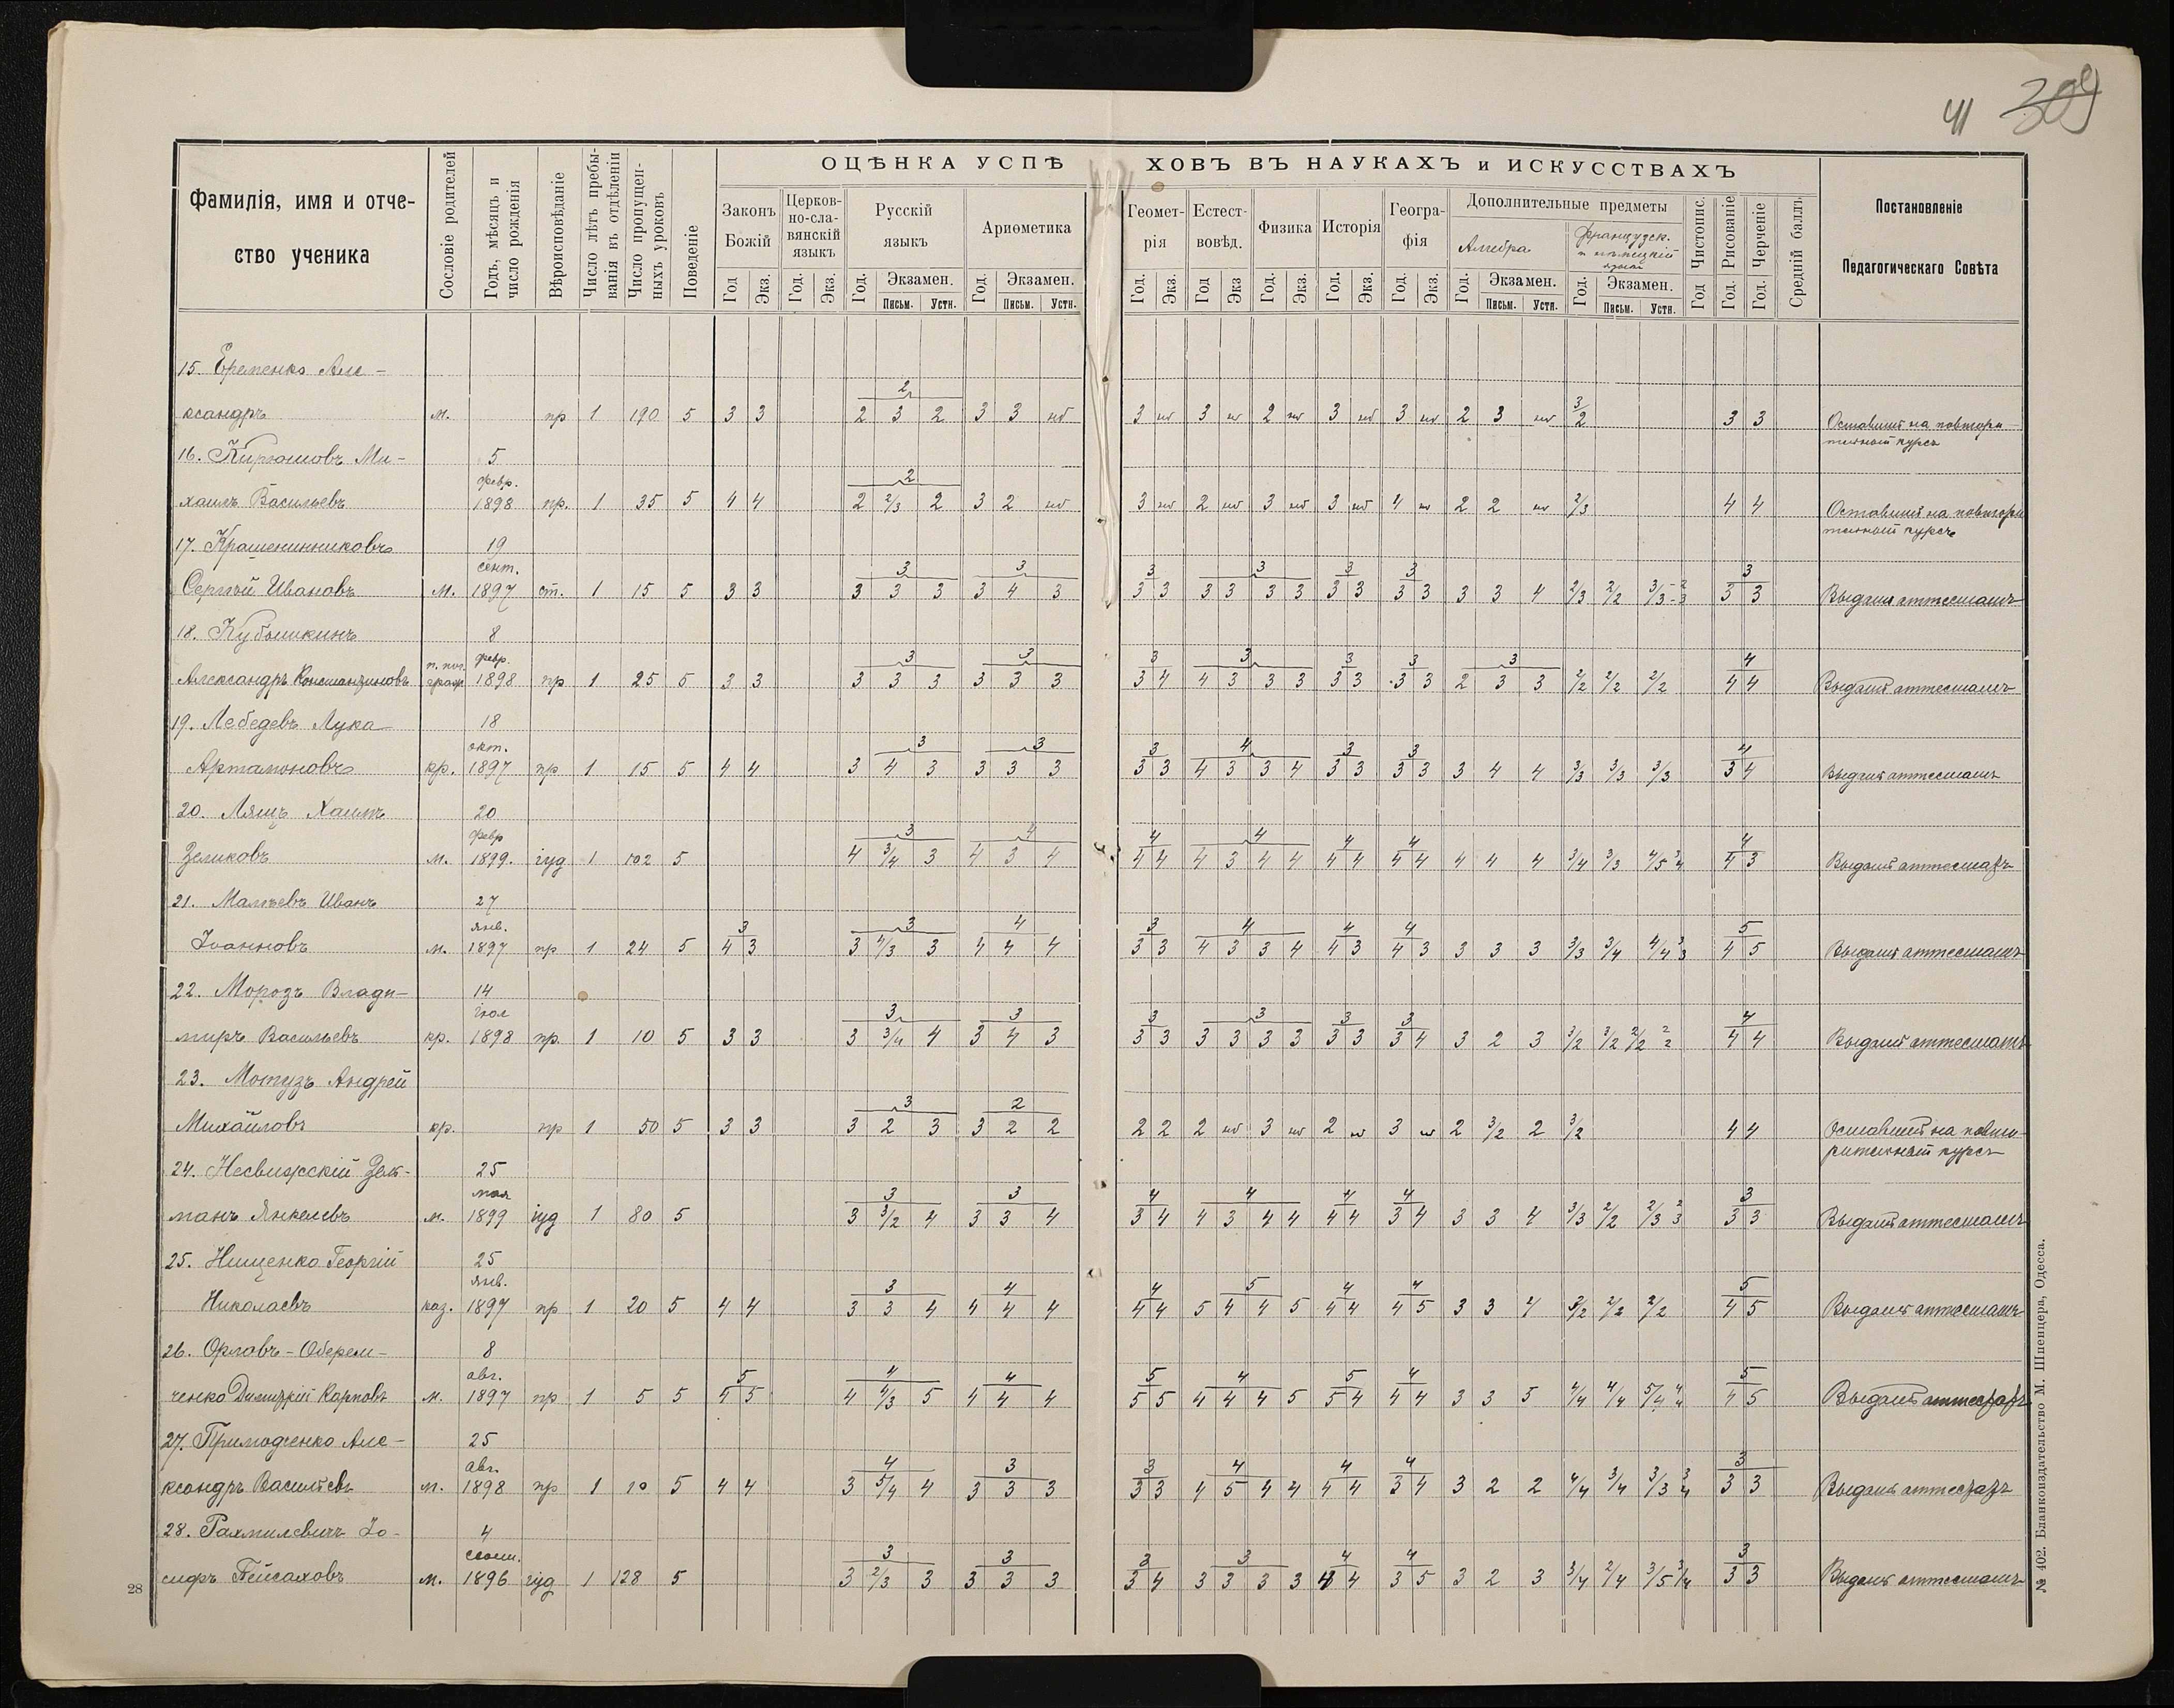 41 309
ОЦѢНКА УСПѢ ХОВЪ ВЪ НАУКАХЪ и ИСКУССТВАХЪ
Фамилія, имя и отче-
ство ученика
Сословіе родителей
Годъ, мѣсяцъ и
число рожденія
Вѣроисповѣданіе
Число лѣтъ пребы-
ванія въ отдѣленіи
Число пропущен-
ныхъ уроковъ
Поведеніе
Законъ
Божій
Церков-
но-сла-
вянскій
языкъ
Русскій
языкъ
Ариѳметика
Геомет-
рія
Естест-
вовѣд.
Физика
Исторія
Геогра-
фія
Дополнительные предметы
Алгебра
Французск.
и нѣмецкій
языки
Год Чистопис.
Год. Рисованіе
Год. Черченіе
Средній баллъ
Постановленіе
Педагогическаго Совѣта
Год Экз. Год. Экз. Год. Экзамен. Год. Экзамен. Год. Экз. Год Экз Год. Экз. Год. Экз. Год. Экз. Год. Экзамен. Год. Экзамен.
Письм. Устн. Письм. Устн. Письм. Устн. Письм. Устн.
15. Еременко Але-
2
ксандръ м. пр 1 190 5 3 3 2 3 2 3 3 нб 3 нб 3 нб 2 нб 3 нб 3 нб 2 3 нб 3/2 3 3 Оставить на повтори-
тельный курсъ
16. Киргошовъ Ми- 5
февр. 2
хаилъ Васильевъ 1898 пр. 1 35 5 4 4 2 2/3 2 3 2 нб 3 нб 2 нб 3 нб 3 нб 4 нб 2 2 нб 2/3 4 4 Оставить на повтори
тельный курсъ
17. Крашенинниковъ 19
сент. 3 3 3 3 3 3 3
Сергѣй Ивановъ м. 1897 ст. 1 15 5 3 3 3 3 3 3 4 3 3 3 3 3 3 3 3 3 3 3 3 3 4 2/3 2/2 3/3 - 2/3 3 3 Выдать аттестатъ
18. Кубышкинъ 8
п. поч. февр. 3 3 3 3 3 3 3 4
Александръ Константиновъ гражд. 1898 пр 1 25 5 3 3 3 3 3 3 3 3 3 4 4 3 3 3 3 3 3 3 2 3 3 2/2 2/2 2/2 4 4 Выдать аттестатъ
19. Лебедевъ Лука 18
окт. 3 3 3 4 3 3 4
Артамоновъ кр. 1897 пр 1 15 5 4 4 3 4 3 3 3 3 3 3 4 3 3 4 3 3 3 3 3 4 4 3/3 3/3 3/3 3 4 Выдать аттестатъ
20. Лящъ Хаимъ 20
февр 3 4 4 4 4 4 4
Зеликовъ м. 1899. іуд 1 102 5 4 3/4 3 4 3 4 4 4 4 3 4 4 4 4 4 4 4 4 4 3/4 3/3 4/5 3/4 4 3 Выдать аттестатъ
21. Мальевъ Иванъ 27
янв. 3 3 4 3 4 4 4 5
Іоанновъ м. 1897 пр 1 24 5 4 3 3 4/3 3 4 4 4 3 3 4 3 3 4 4 3 4 3 3 3 3 3/3 3/4 4/4 3/3 4 5 Выдать аттестатъ
22. Морозъ Влади- 14
іюл 3 3 3 3 3 3 4
миръ Васильевъ кр. 1898 пр. 1 10 5 3 3 3 3/4 4 3 4 3 3 3 3 3 3 3 3 3 3 4 3 2 3 3/2 3/2 2/2 2/2 4 4 Выдать аттестатъ
23. Мотузъ Андрей
3 2
Михайловъ кр. пр 1 50 5 3 3 3 2 3 3 2 2 2 2 2 нб 3 нб 2 нб 3 нб 2 3/2 2 3/2 4 4 Оставить на повто-
рительный курсъ
24. Несвижскій Зел- 25
мая 3 3 4 4 4 4 3
манъ Янкелевъ м. 1899 іуд 1 80 5 3 3/2 4 3 3 4 3 4 4 3 4 4 4 4 3 4 3 3 4 3/3 2/2 2/3 2/3 3 3 Выдать аттестатъ
25. Нищенко Георгій 25
янв. 3 4 4 5 4 4 5
Николаевъ каз. 1897 пр 1 20 5 4 4 3 3 4 4 4 4 4 4 5 4 4 5 4 4 4 5 3 3 4 3/2 2/2 2/2 4 5 Выдать аттестатъ
26. Орловъ-Оберем- 8
авг. 5 4 4 5 4 5 4 5
ченко Димитрій Карповъ м. 1897 пр 1 5 5 5 5 4 4/3 5 4 4 4 5 5 4 4 4 5 5 4 4 4 3 3 5 4/4 4/4 5/4 4/4 4 5 Выдать аттестатъ
27. Примаченко Але- 25
авг. 4 3 3 4 4 4 3
ксандръ Васильевъ м. 1898 пр 1 10 5 4 4 3 5/4 4 3 3 3 3 3 4 5 4 4 4 4 3 4 3 2 2 4/4 3/4 3/3 3/4 3 3 Выдать аттестатъ
28. Рахмилевичъ Іо- 4
3 3 3 3 4 4 3
сифъ Пейсаховъ м. 1896 іуд 1 128 5 3 2/3 3 3 3 3 3 4 3 3 3 3 4 4 3 5 3 2 3 3/4 2/4 3/5 3/4 3 3 Выдать аттестатъ
28
№ 402. Бланкоиздательство М. Шпенцера, Одесса.